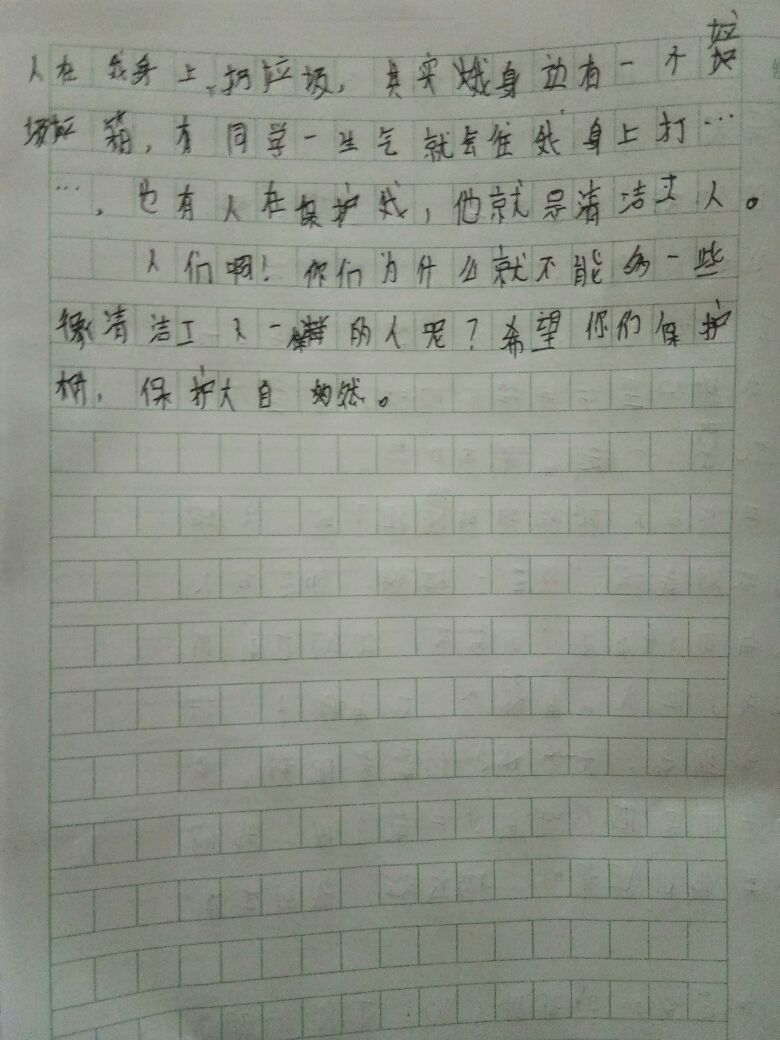 人在我身上扔垃圾,其实我身边有一个垃圾
垃圾箱,有同学一生气就会往我身上打…
…,也有人在保护我,他就是清洁工人。
人们啊!你们为什么就不能多一些
像清洁工人一样的人呢?希望你们保护
树,保护大自然。